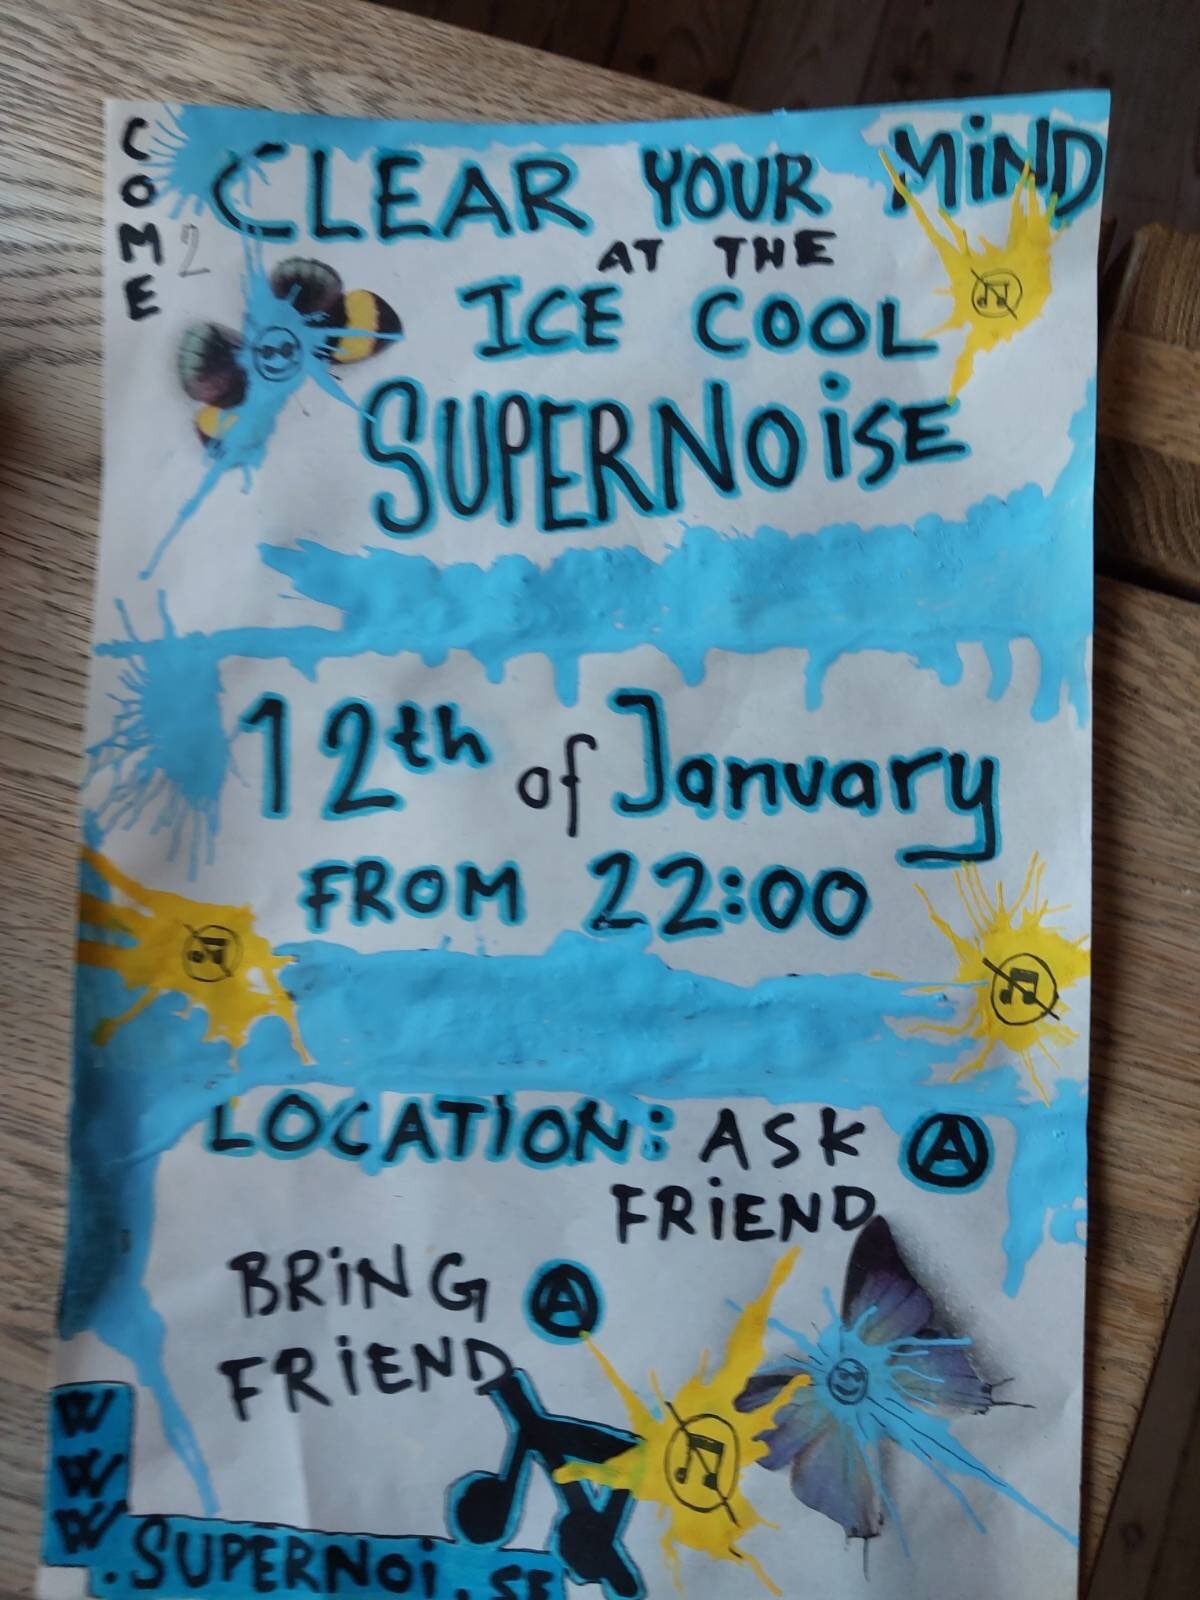 COME
2
CLEAR YOUR MiND
AT THE
ICE COOL
SUPERNOiSE
12th of January
FROM 22:00
LOCATION: ASK Ⓐ
FRiEND
BRiNG Ⓐ
FRiEND
WWW
.SUPERNOi.SE